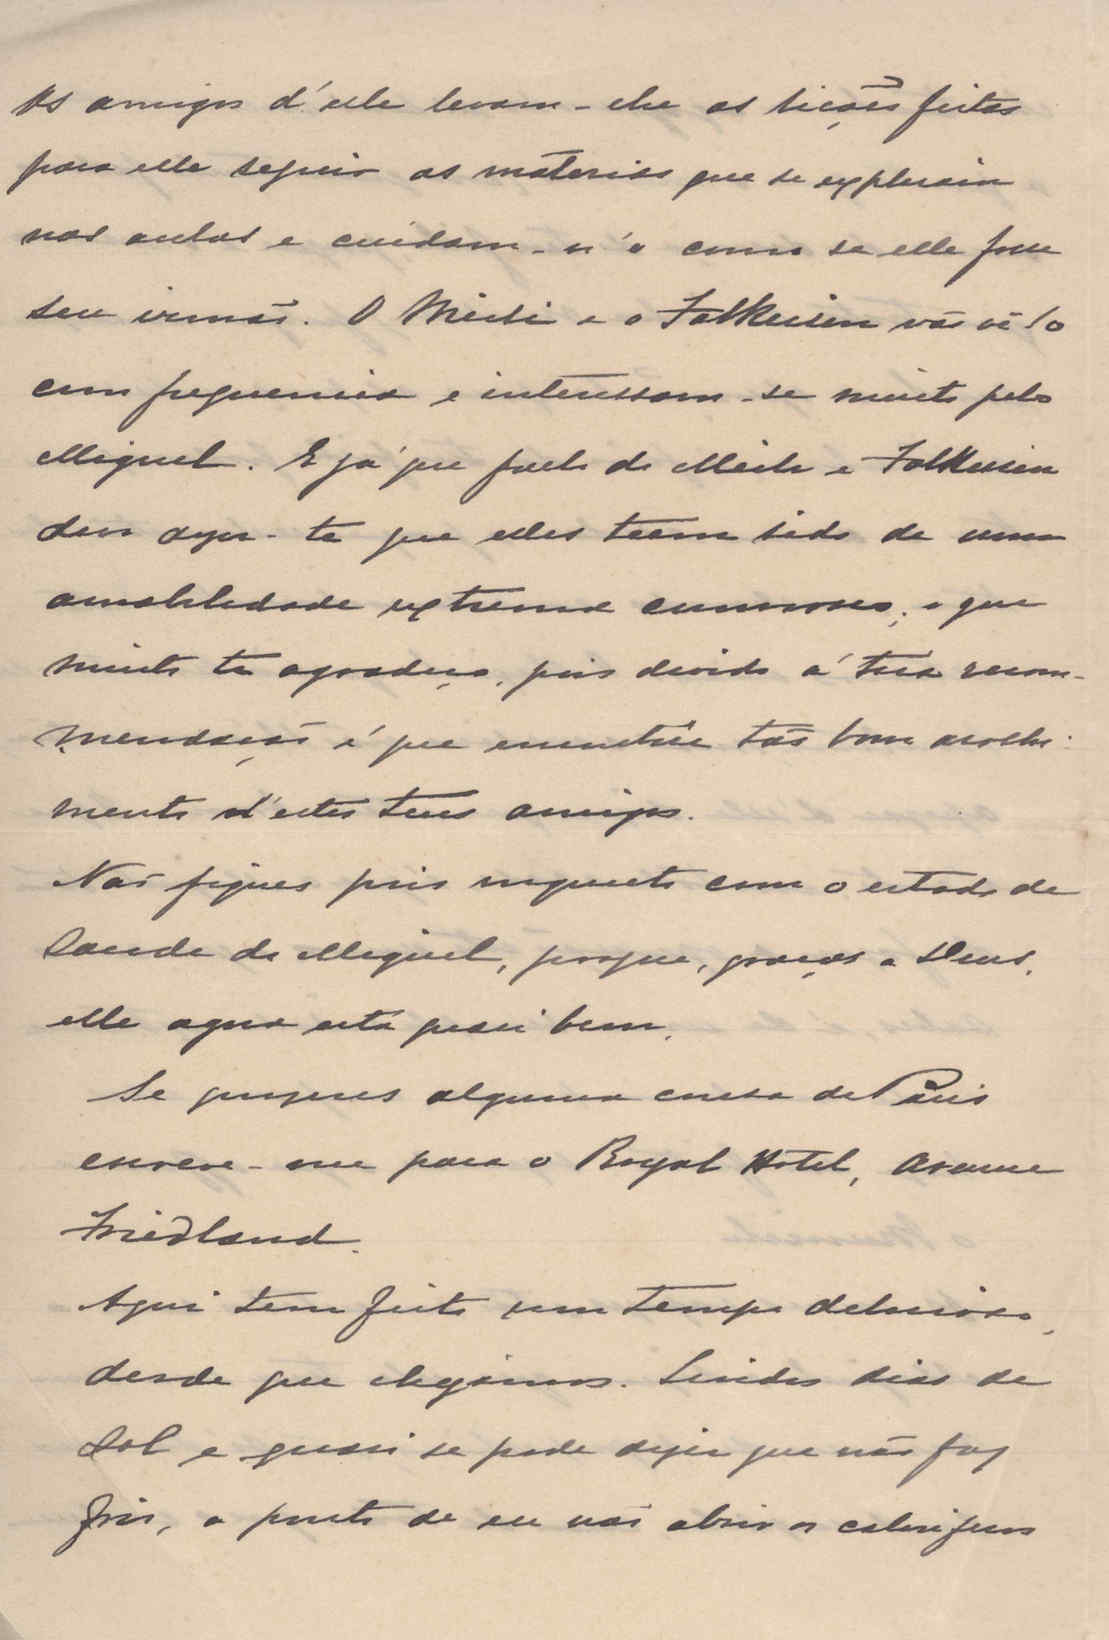 Os amigos d'elle levam-lhe as licções feitas
para elle seguir as materias que se explicam
nas aulas e cuidam-n'o como se elle fosse
seu irmão. O e o vão vê-lo
com frequencia e interessam-se muito pelo
Miguel. E já que fallo do e
devo dizer-te que elles teem sido de uma
amabilidade extrema comnosco; o que
muito te agradeço, pois devido á tua recom-
mendação é que encontrei tão bom acolhi-
mento d'estes teus amigos.
Não fiques pois inquieto com o estado de
saude do Miguel, porque, graças a Deus,
elle agora está quasi bem.
Se quizeres alguma cousa de Paris
escreve-me para o Royal Hotel, Avenue
Friedland.
Aqui tem feito um tempo delicioso,
desde que chegámos. Lindos dias de
sol e quasi se pode dizer que não faz
frio, a ponto de eu não abrir os caloriferos